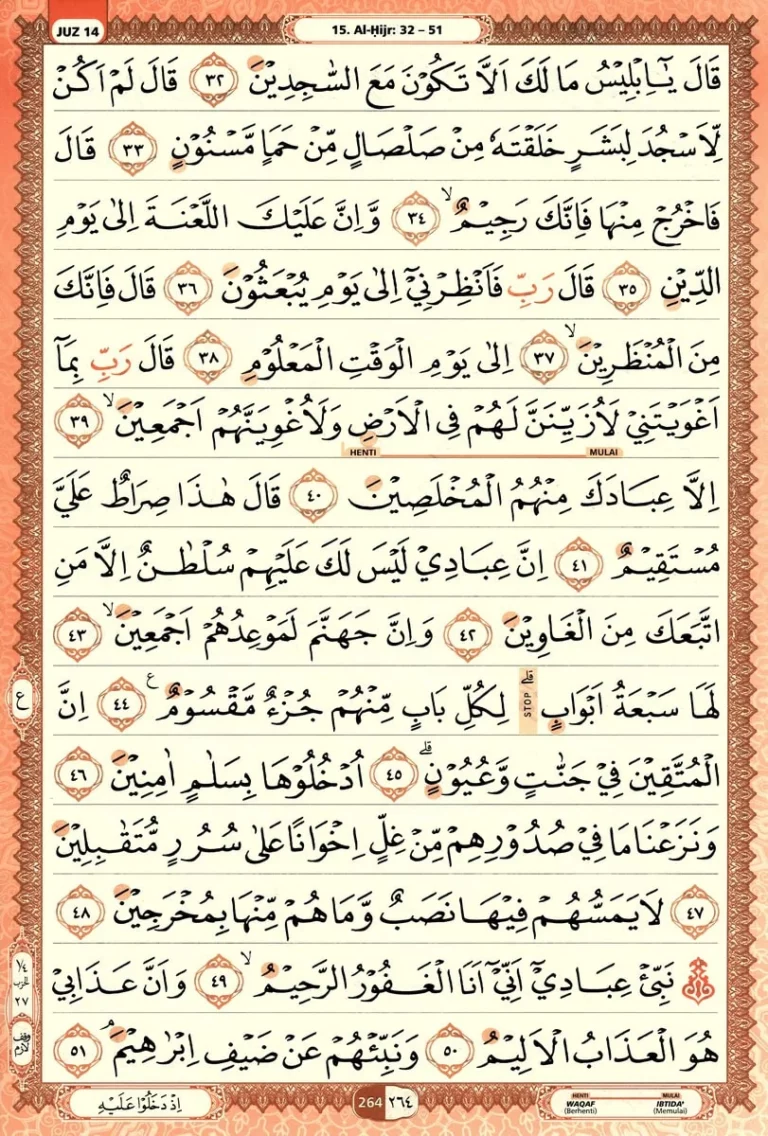 JUZ 14
15. Al-Ḥijr: 32 – 51
قَالَ يٰٓاِبْلِيْسُ مَا لَكَ اَلَّا تَكُوْنَ مَعَ السّٰجِدِيْنَ ٣٢ قَالَ لَمْ اَكُنْ
لِّاَسْجُدَ لِبَشَرٍ خَلَقْتَهٗ مِنْ صَلْصَالٍ مِّنْ حَمَاٍ مَّسْنُوْنٍ ٣٣ قَالَ
فَاخْرُجْ مِنْهَا فَاِنَّكَ رَجِيْمٌۙ ٣٤ وَّاِنَّ عَلَيْكَ اللَّعْنَةَ اِلٰى يَوْمِ
الدِّيْنِ ٣٥ قَالَ رَبِّ فَاَنْظِرْنِيْٓ اِلٰى يَوْمِ يُبْعَثُوْنَ ٣٦ قَالَ فَاِنَّكَ
مِنَ الْمُنْظَرِيْنَۙ ٣٧ اِلٰى يَوْمِ الْوَقْتِ الْمَعْلُوْمِ ٣٨ قَالَ رَبِّ بِمَآ
اَغْوَيْتَنِيْ لَاُزَيِّنَنَّ لَهُمْ فِى الْاَرْضِ وَلَاُغْوِيَنَّهُمْ اَجْمَعِيْنَۙ ٣٩
HENTI MULAI
اِلَّا عِبَادَكَ مِنْهُمُ الْمُخْلَصِيْنَ ٤٠ قَالَ هٰذَا صِرَاطٌ عَلَيَّ
مُسْتَقِيْمٌ ٤١ اِنَّ عِبَادِيْ لَيْسَ لَكَ عَلَيْهِمْ سُلْطٰنٌ اِلَّا مَنِ
اتَّبَعَكَ مِنَ الْغَاوِيْنَ ٤٢ وَاِنَّ جَهَنَّمَ لَمَوْعِدُهُمْ اَجْمَعِيْنَۙ ٤٣
لَهَا سَبْعَةُ اَبْوَابٍۗ STOP لِكُلِّ بَابٍ مِّنْهُمْ جُزْءٌ مَّقْسُوْمٌ ࣖ ٤٤ اِنَّ
ع
الْمُتَّقِيْنَ فِيْ جَنّٰتٍ وَّعُيُوْنٍۗ ٤٥ اُدْخُلُوْهَا بِسَلٰمٍ اٰمِنِيْنَ ٤٦
وَنَزَعْنَا مَا فِيْ صُدُوْرِهِمْ مِّنْ غِلٍّ اِخْوَانًا عَلٰى سُرُرٍ مُّتَقٰبِلِيْنَ
٤٧ لَا يَمَسُّهُمْ فِيْهَا نَصَبٌ وَّمَا هُمْ مِّنْهَا بِمُخْرَجِيْنَ ٤٨
نَبِّئْ عِبَادِيْٓ اَنِّيْٓ اَنَا الْغَفُوْرُ الرَّحِيْمُۙ ٤٩ وَاَنَّ عَذَابِيْ
١/٤
الحزب
٢٧
هُوَ الْعَذَابُ الْاَلِيْمُ ٥٠ وَنَبِّئْهُمْ عَنْ ضَيْفِ اِبْرٰهِيْمَۘ ٥١
وقف لازم
اِذْ دَخَلُوْا عَلَيْهِ
264 ٢٦٤
HENTI MULAI
WAQAF IBTIDA'
(Berhenti) (Memulai)